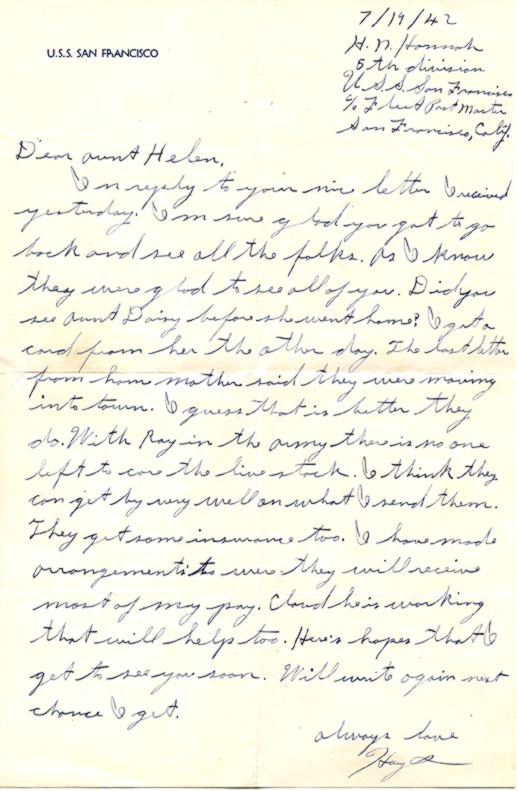 7/19/42
U.S.S. SAN FRANCISCO
H. N. Hannah
5th division
U.S.S. San Francisco
c/o Fleet Post Master
San Francisco, Calif.
Dear aunt Helen,
In reply to your nice letter I received
yesterday. I'm sure glad you got to go
back and see all the folks. As I know
they were glad to see all of you. Did you
see aunt Daisy before she went home? I got a
card from her the other day. The last letter
from home mother said they were moving
into town. I guess that is better they
do. With Ray in the army there is no one
left to care the live stock. I think they
can get by very well on what I send them.
They get some insurance too. I have made
arrangements to were they will receive
most of my pay. Cloud he is working
that will help too. Here's hopes that I
get to see you soon. Will write again next
chance I get.
always love